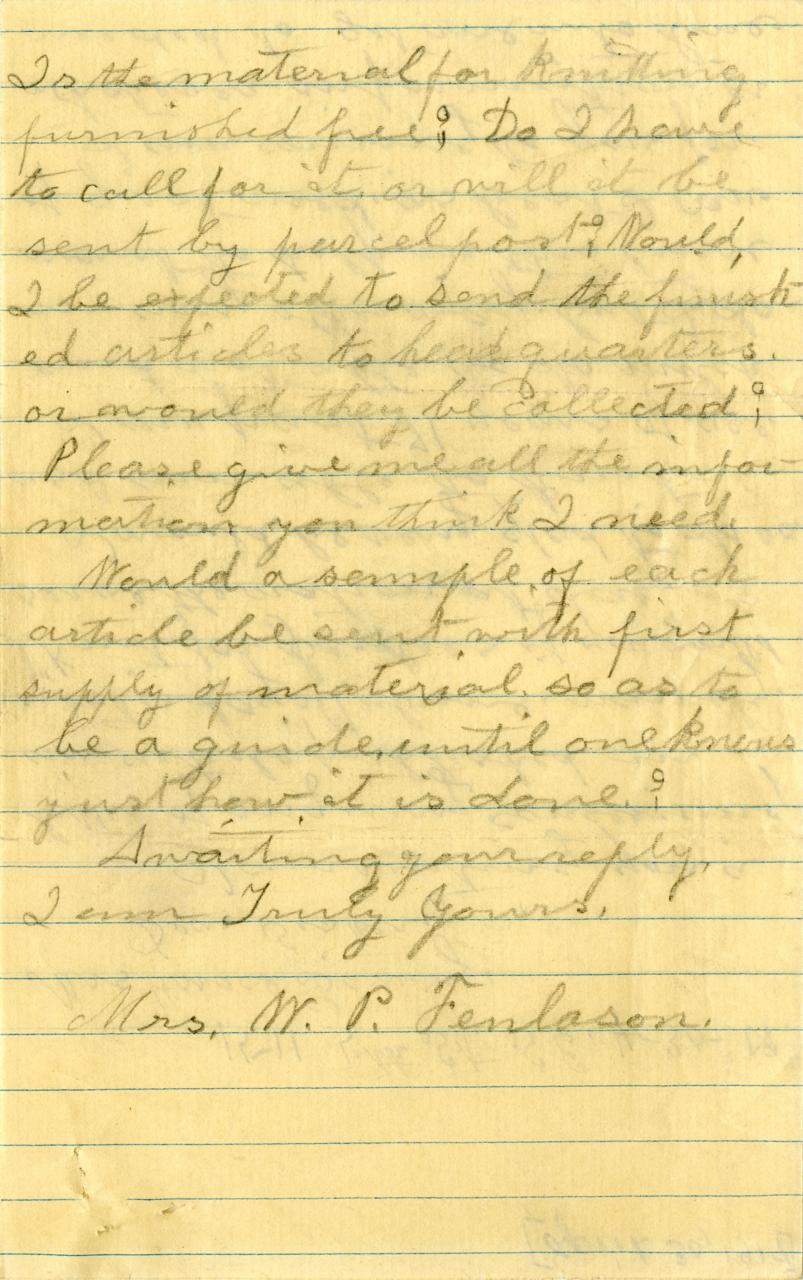 Is the material for knitting
furnished free? Do I have
to call for it, or will it be
sent by parcel post? Would,
I be expected to send the finish
ed articles to headquarters.
or would they be collected?
Please give me all the infor
mation you think I need.
Would a sample, of each
article be sent with first
supply of material. so as to
be a guide, until one knows
just how it is done.?
Awaiting your reply,
I am Truly Yours,
Mrs. W. P. Fenlason.